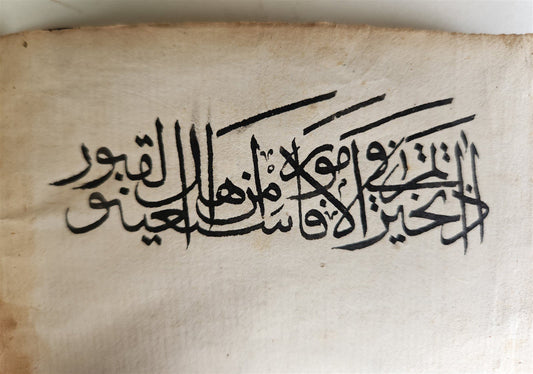 اذا تحيرتم في الامور فاستعينو من اهل القبور